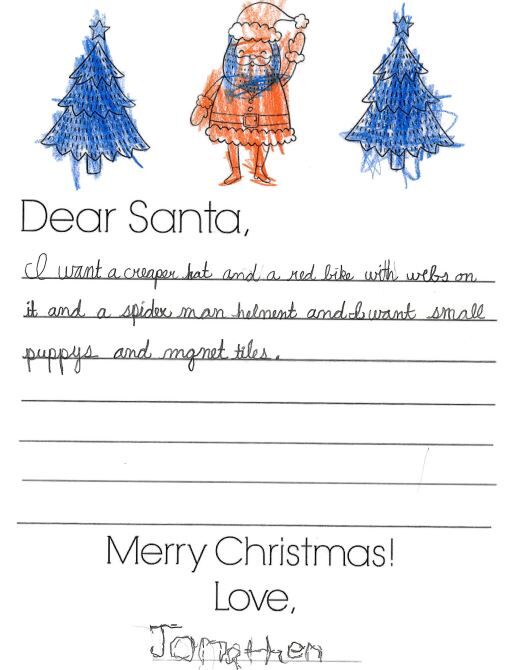 Dear Santa,
I want a creaper hat and a red bike with webs on
it and a spider man helment and I want small
puppys and mgnet tiles.
Merry Christmas!
Love,
Jonathen